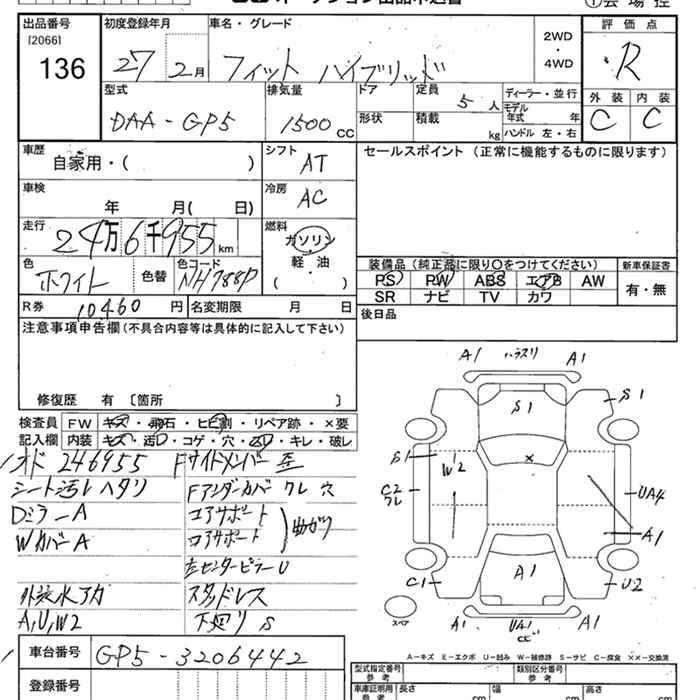 出品番号
[2066]
136
初度登録年月
27 2月
車名・グレード
フィット ハイブリッド
2WD
・
4WD
評価点
R
外装 内装
C C
型式
DAA-GP5
排気量
1500 CC
ドア
形状
定員
5人
積載
kg
ディーラー・並行
モデル年式 年
ハンドル 左・右
車歴
自家用・( )
シフト
AT
セールスポイント (正常に機能するものに限ります)
車検
年 月( 日)
冷房
AC
走行
24万6千955km
燃料
ガソリン
軽・油
( )
色
ホワイト
色替
色コード
NH788P
装備品 (純正品に限り○をつけてください) 新車保証書
PS PW ABS エアB AW
SR ナビ TV カワ
有・無
R券
10460円
名変期限 月 日
後日品
注意事項申告欄 (不具合内容等は具体的に記入して下さい)
修復歴 有 〔箇所 〕
検査員 FW キズ・飛石・ヒビ割・リペア跡・×要
記入欄 内装 キズ・汚レ・コゲ・穴・凹・キレ・破レ
メード 246955 Fサイドメンバー歪
シート汚レ ヘタリ Fアンダーカバー ワレ 穴
Dミラー A コアサポート
WカバーA ロアサポート 曲ガリ
左センターピラーU
外装水アカ スタッドレス
A,U,W2 下廻りS
A1 ハラスリ A1
S1 S1
S1 W2 ×
C2
ワレ
UA4
A1
C1 A1 U2
スペア
A1 UA1 A1
A-キズ E-エクボ U-凹み W-補修跡 S-サビ C-腐食 ××-交換済
車台番号
GP5-3206442
登録番号
型式指定番号
参考
類別区分番号
参考
車庫証明用
参考
長さ cm
幅 cm
高さ cm